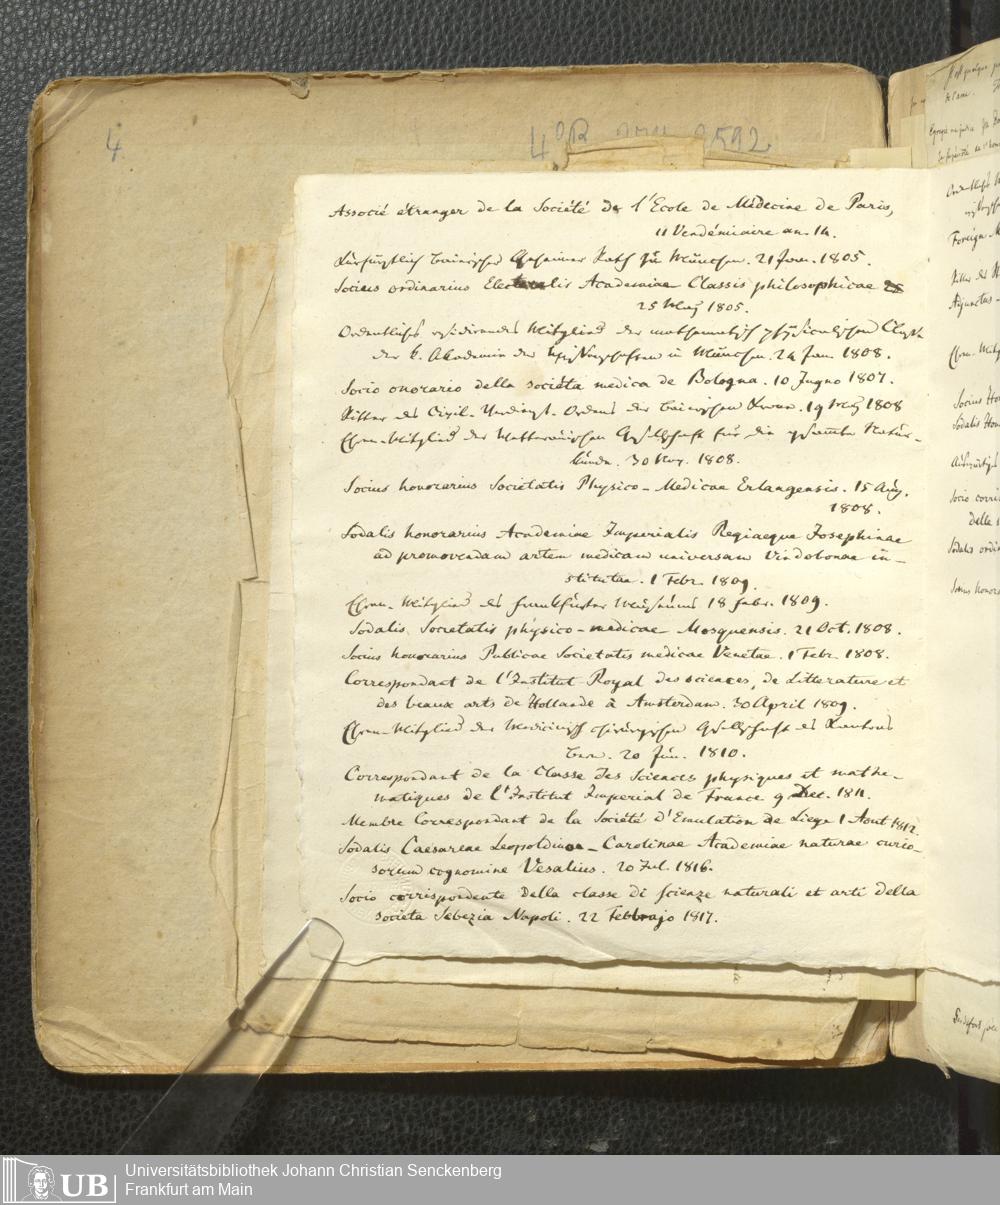 4
Associé étranger de la Société de l'Ecole de Médecine de Paris,
11 Vendémiaire an. 14.
Kurfürstlich bairischer Geheimer Rath zu München. 21 Jan. 1805.
Socius ordinarius Electoralis Academiae Classis philosophicae
25 May 1805.
Ordentliches residirendes Mitglied der mathematisch physicalischen Classe
der k. Akademie der Wissenschaften in München. 24 Jan. 1808.
Socio onorario della societa medica de Bologna. 10 Jugno 1807.
Ritter des Civil-Verdienst-Ordens der bairischen Krone. 19 May 1808
Ehren-Mitglied der Wetterauischen Gesellschaft für die gesamte Natur-
kunde. 30 1808.
Socius honorarius Societatis Physico-Medicae Erlangensis. 15 Aug.
1808.
Sodalis honorarius Academiae Imperialis Regiaeque Josephinae
ad promovendam artem medicam universam Vindobonae in-
stitutae. 1 Febr. 1809.
Ehren-Mitglied des Frankfurter Museums 18 Febr. 1809.
Sodalis Societatis physico-medicae Mosquensis. 21 Oct. 1808.
Socius honorarius Publicae Societatis medicae Venetae. 1 Febr. 1808.
Correspondant de l'Institut Royal des sciences, de Litterature et
des beaux arts de Hollande à Amsterdam. 30 April 1809.
Ehren-Mitglied der Medicinisch chirurgischen Gesellschaft des Kantons
Bern. 20 Jun. 1810.
Correspondant de la Classe des Sciences physiques et mathe-
matiques de l'Institut Imperial de France 9 Dec. 1811.
Membre Correspondant de la Société d'Emulation de Liege 1 Aout 1812.
Sodalis Caesareae Leopoldinae-Carolinae Academiae naturae curio-
sorum cognomine Vesalius. 20 Jul. 1816.
Socio corrispondente della classe di scienze naturali et arti della
societa Sebezia Napoli. 22 Febbrajo 1817.
Foreign
Adjunctus
Socius
Universitätsbibliothek Johann Christian Senckenberg
Frankfurt am Main
UB